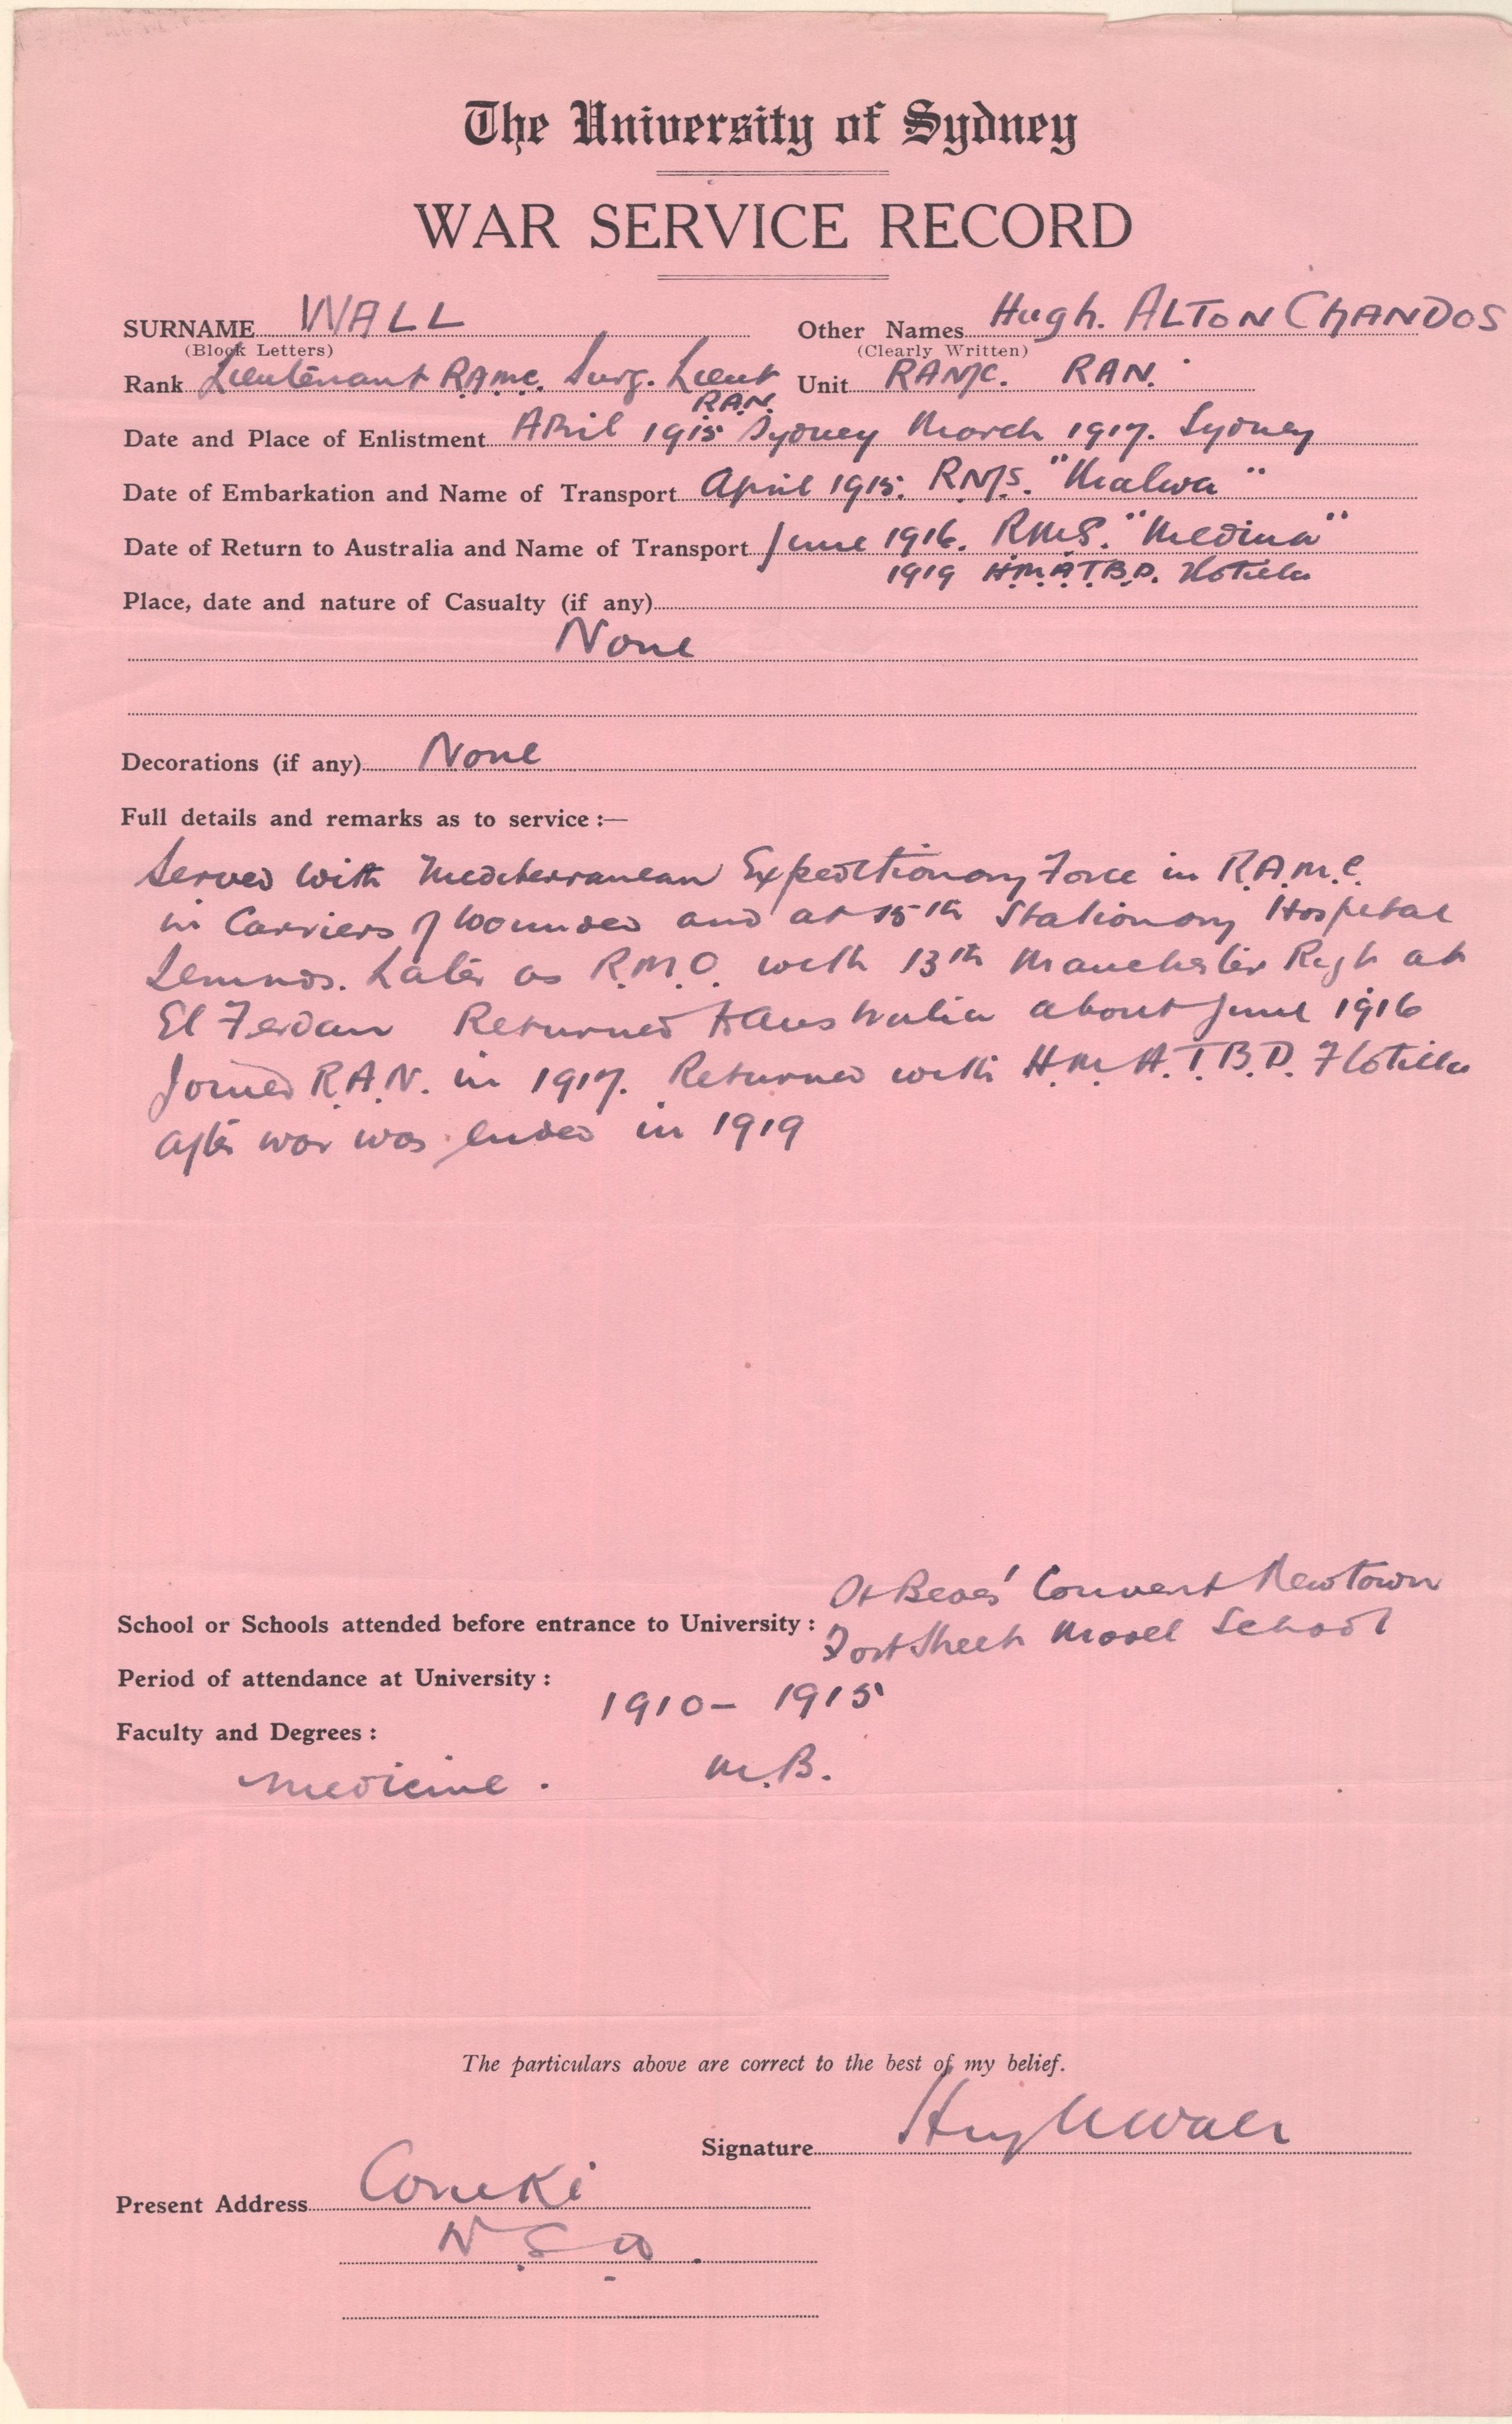 The University of Sydney
WAR SERVICE RECORD
SURNAME WALL Other Names Hugh. ALTON CHANDOS
(Block Letters) (Clearly Written)
Rank Lieutenant R.A.M.C. Surg. Lieut Unit RAMC. RAN.
R.A.N.
Date and Place of Enlistment April 1915 Sydney March 1917. Sydney
Date of Embarkation and Name of Transport April 1915. R.M.S. "Malwa"
Date of Return to Australia and Name of Transport June 1916. R.M.S. "Medina"
1919 H.M.A.T.B.D. Flotilla
Place, date and nature of Casualty (if any)
None
Decorations (if any) None
Full details and remarks as to service :—
Served with Mediterranean Expeditionary Force in R.A.M.C.
in Carriers of wounded and at 15th Stationary Hospital
Lemnos. Later as R.M.O. with 13th Manchester Regt at
El Ferdan Returned to Australia about June 1916
Joined R.A.N. in 1917. Returned with H.M.A.T.B.D. Flotilla
after war was ended in 1919
St Bedes' Convent Newtown
School or Schools attended before entrance to University :
Fort Street Model School
Period of attendance at University :
1910 - 1915
Faculty and Degrees :
Medicine. M.B.
The particulars above are correct to the best of my belief.
Signature Hugh Wall
Present Address
N.S.W.